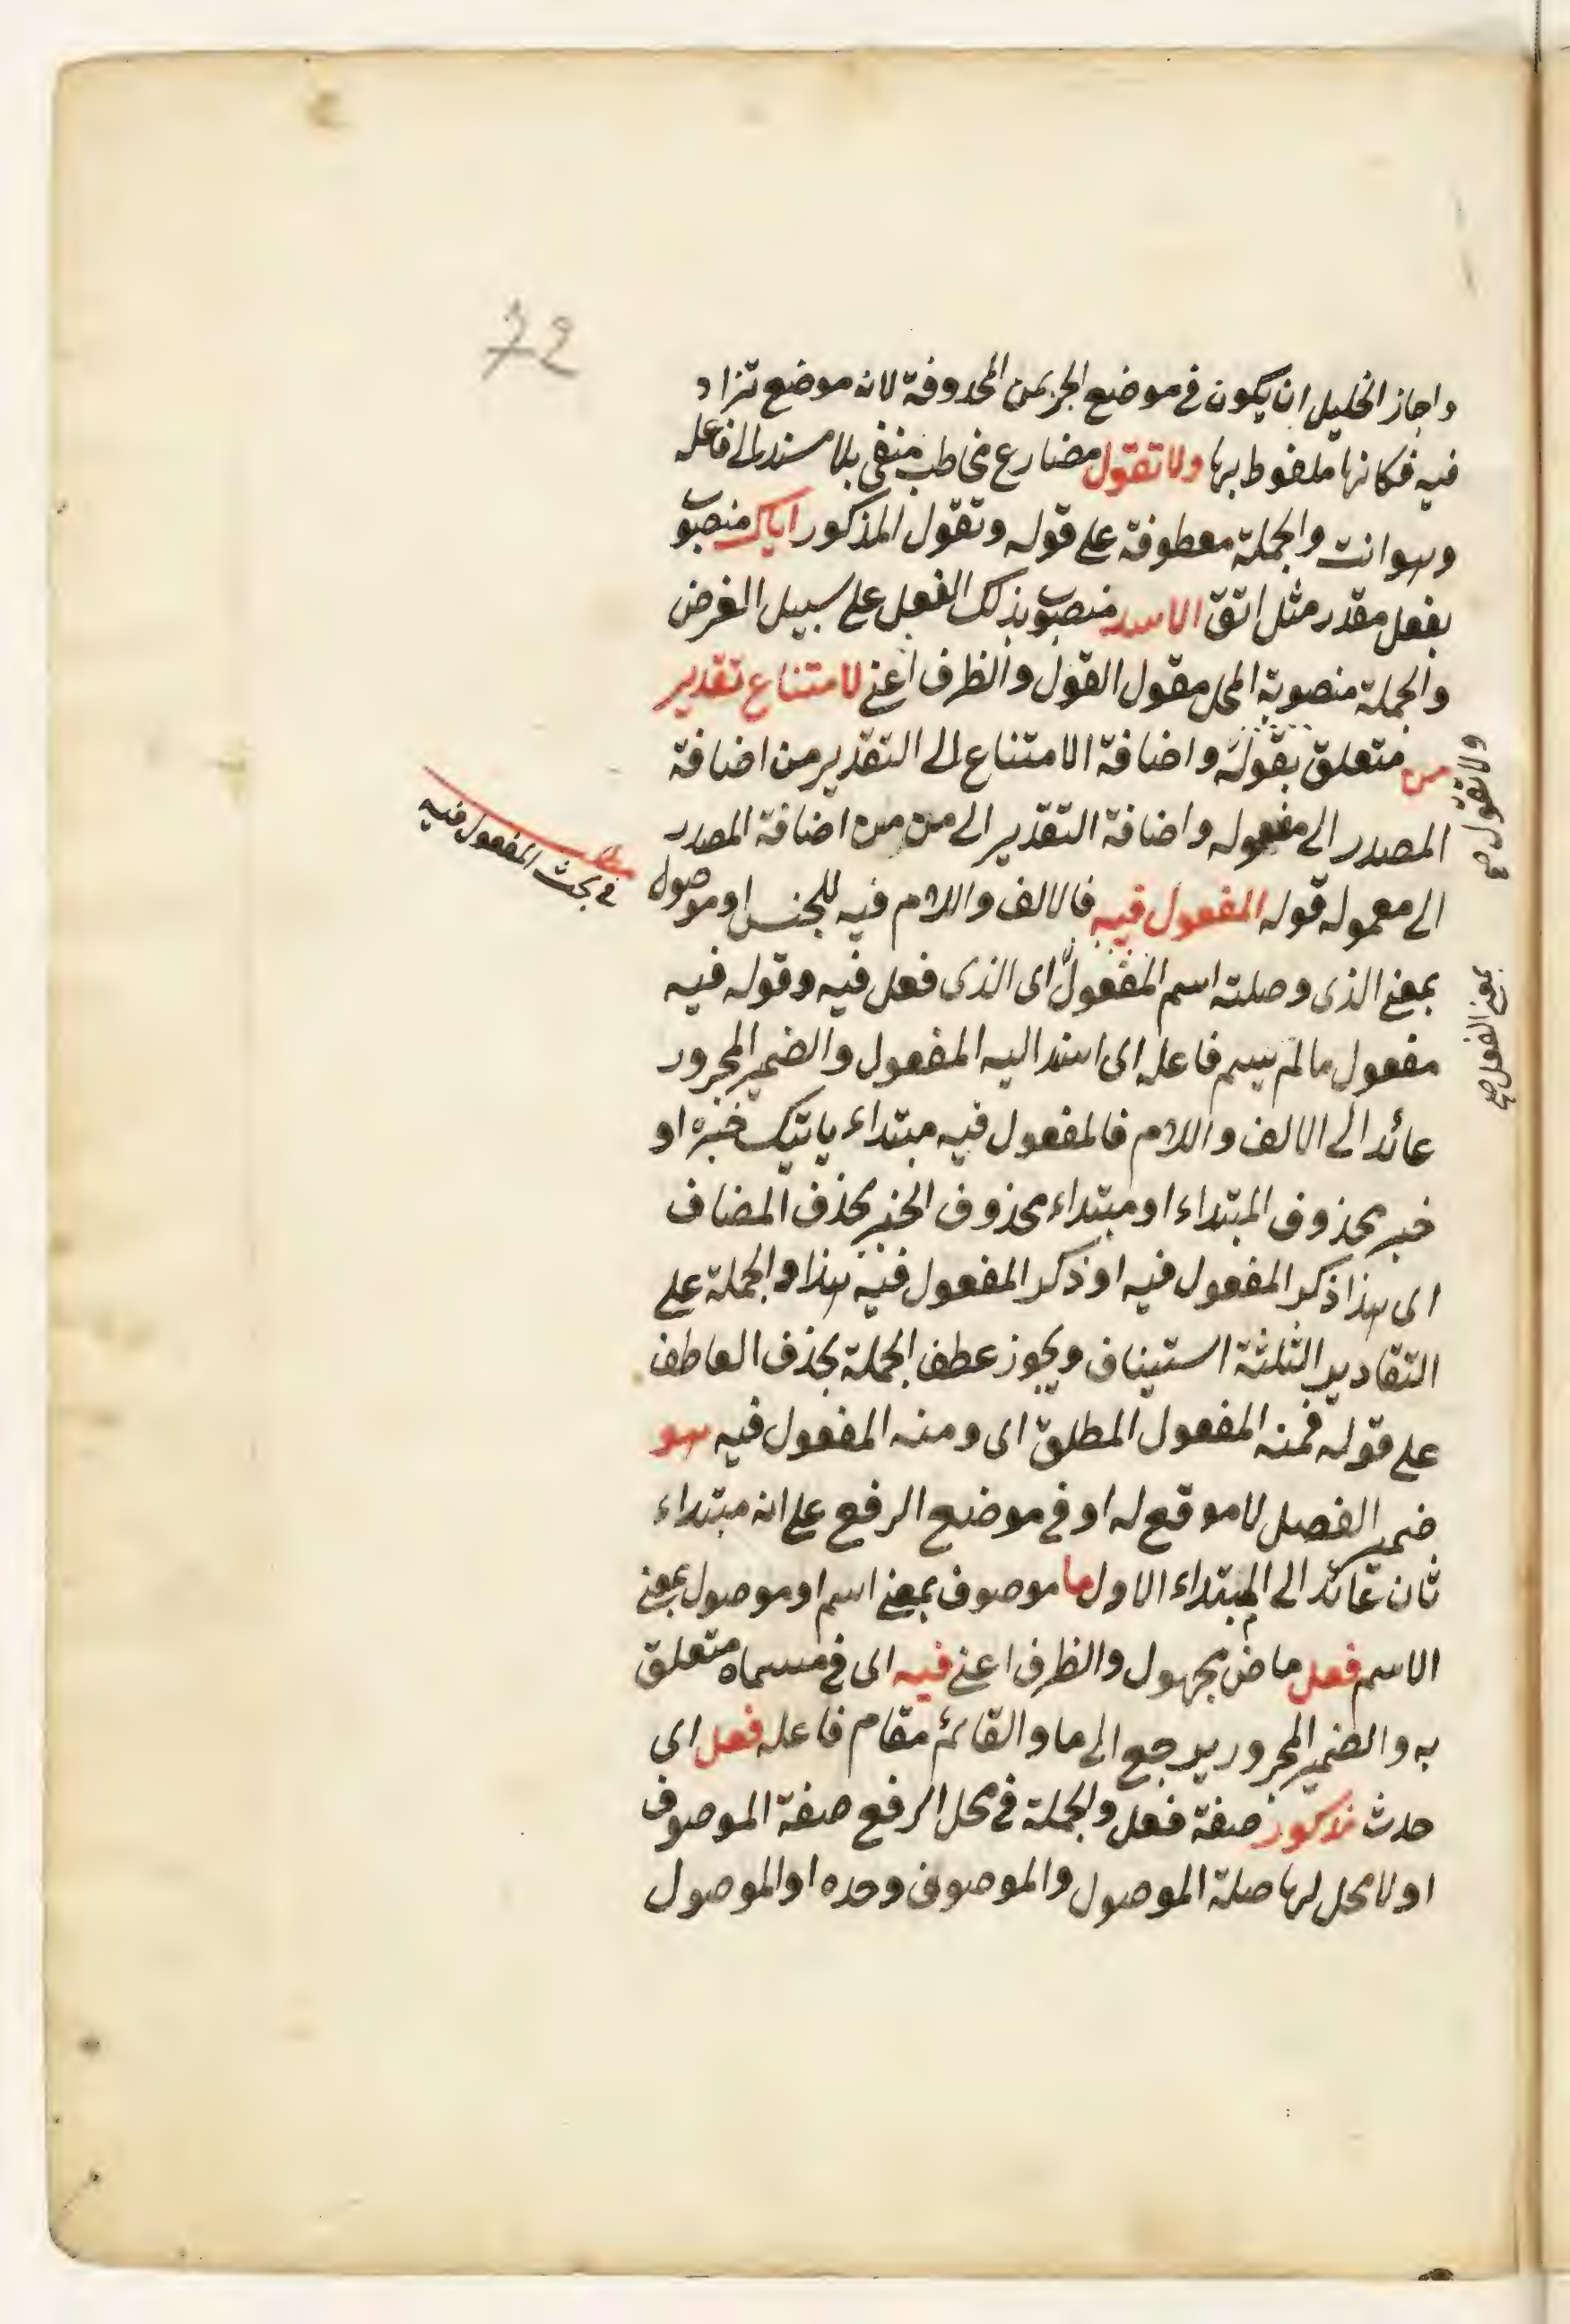 72
واجاز الخليل ان يكون في موضع الجر بمن المحذوفة لانه موضع تزاد
فيه فكانها ملفوط بها ولا تقول مضارع مخاطب منفى بلا مسند الى فاعله
وهو انت والجملة معطوفة على قوله وتقول المذكور اياك منصوب
بفعل مقدر مثل اتق الاسد منصوب بذلك الفعل على سبيل الفرض
والجملة منصوبة المحل مقول القول والظرف اعنى لامتناع تقدير
من متعلق بقوله واضافة الامتناع الى التقدير من اضافة
ولا تقول صح
المصدر الى مفعوله واضافة التقدير الى من من اضافة المصدر
الى معموله قوله المفعول فيه فالالف واللام فيه للجنس او موصول
مطلب في بحث المفعول فيه
بمعنى الذى وصلته اسم المفعول اى الذى فعل فيه وقوله فيه
بمعنى الفعل صح
مفعول مالم يسم فاعله اى اسند اليه المفعول والضمير المجرور
عائد الى الالف واللام فالمفعول فيه مبتداء ياتيك خبره او
خبر محذوف المبتداء او مبتداء محذوف الخبر بحذف المضاف
اى هذا ذكر المفعول فيه او ذكر المفعول فيه هذا والجملة على
التقادير الثلثة استيناف ويجوز عطف الجملة بحذف العاطف
على قوله فمنه المفعول المطلق اى ومنه المفعول فيه هو
ضمير الفصل لا موقع له او في موضع الرفع على انه مبتداء
ثان عائد الى المبتداء الاول ما موصوف بمعنى اسم او موصول بمعنى
الاسم فعل ماض مجهول والظرف اعنى فيه اى في مسماه متعلق
به والضمير المجرور يرجع الى ما والقائم مقام فاعله فعل اى
حدث مذكور صفة فعل والجملة في محل الرفع صفة الموصوف
او لا محل لها صلة الموصول والموصوف وحده او الموصول